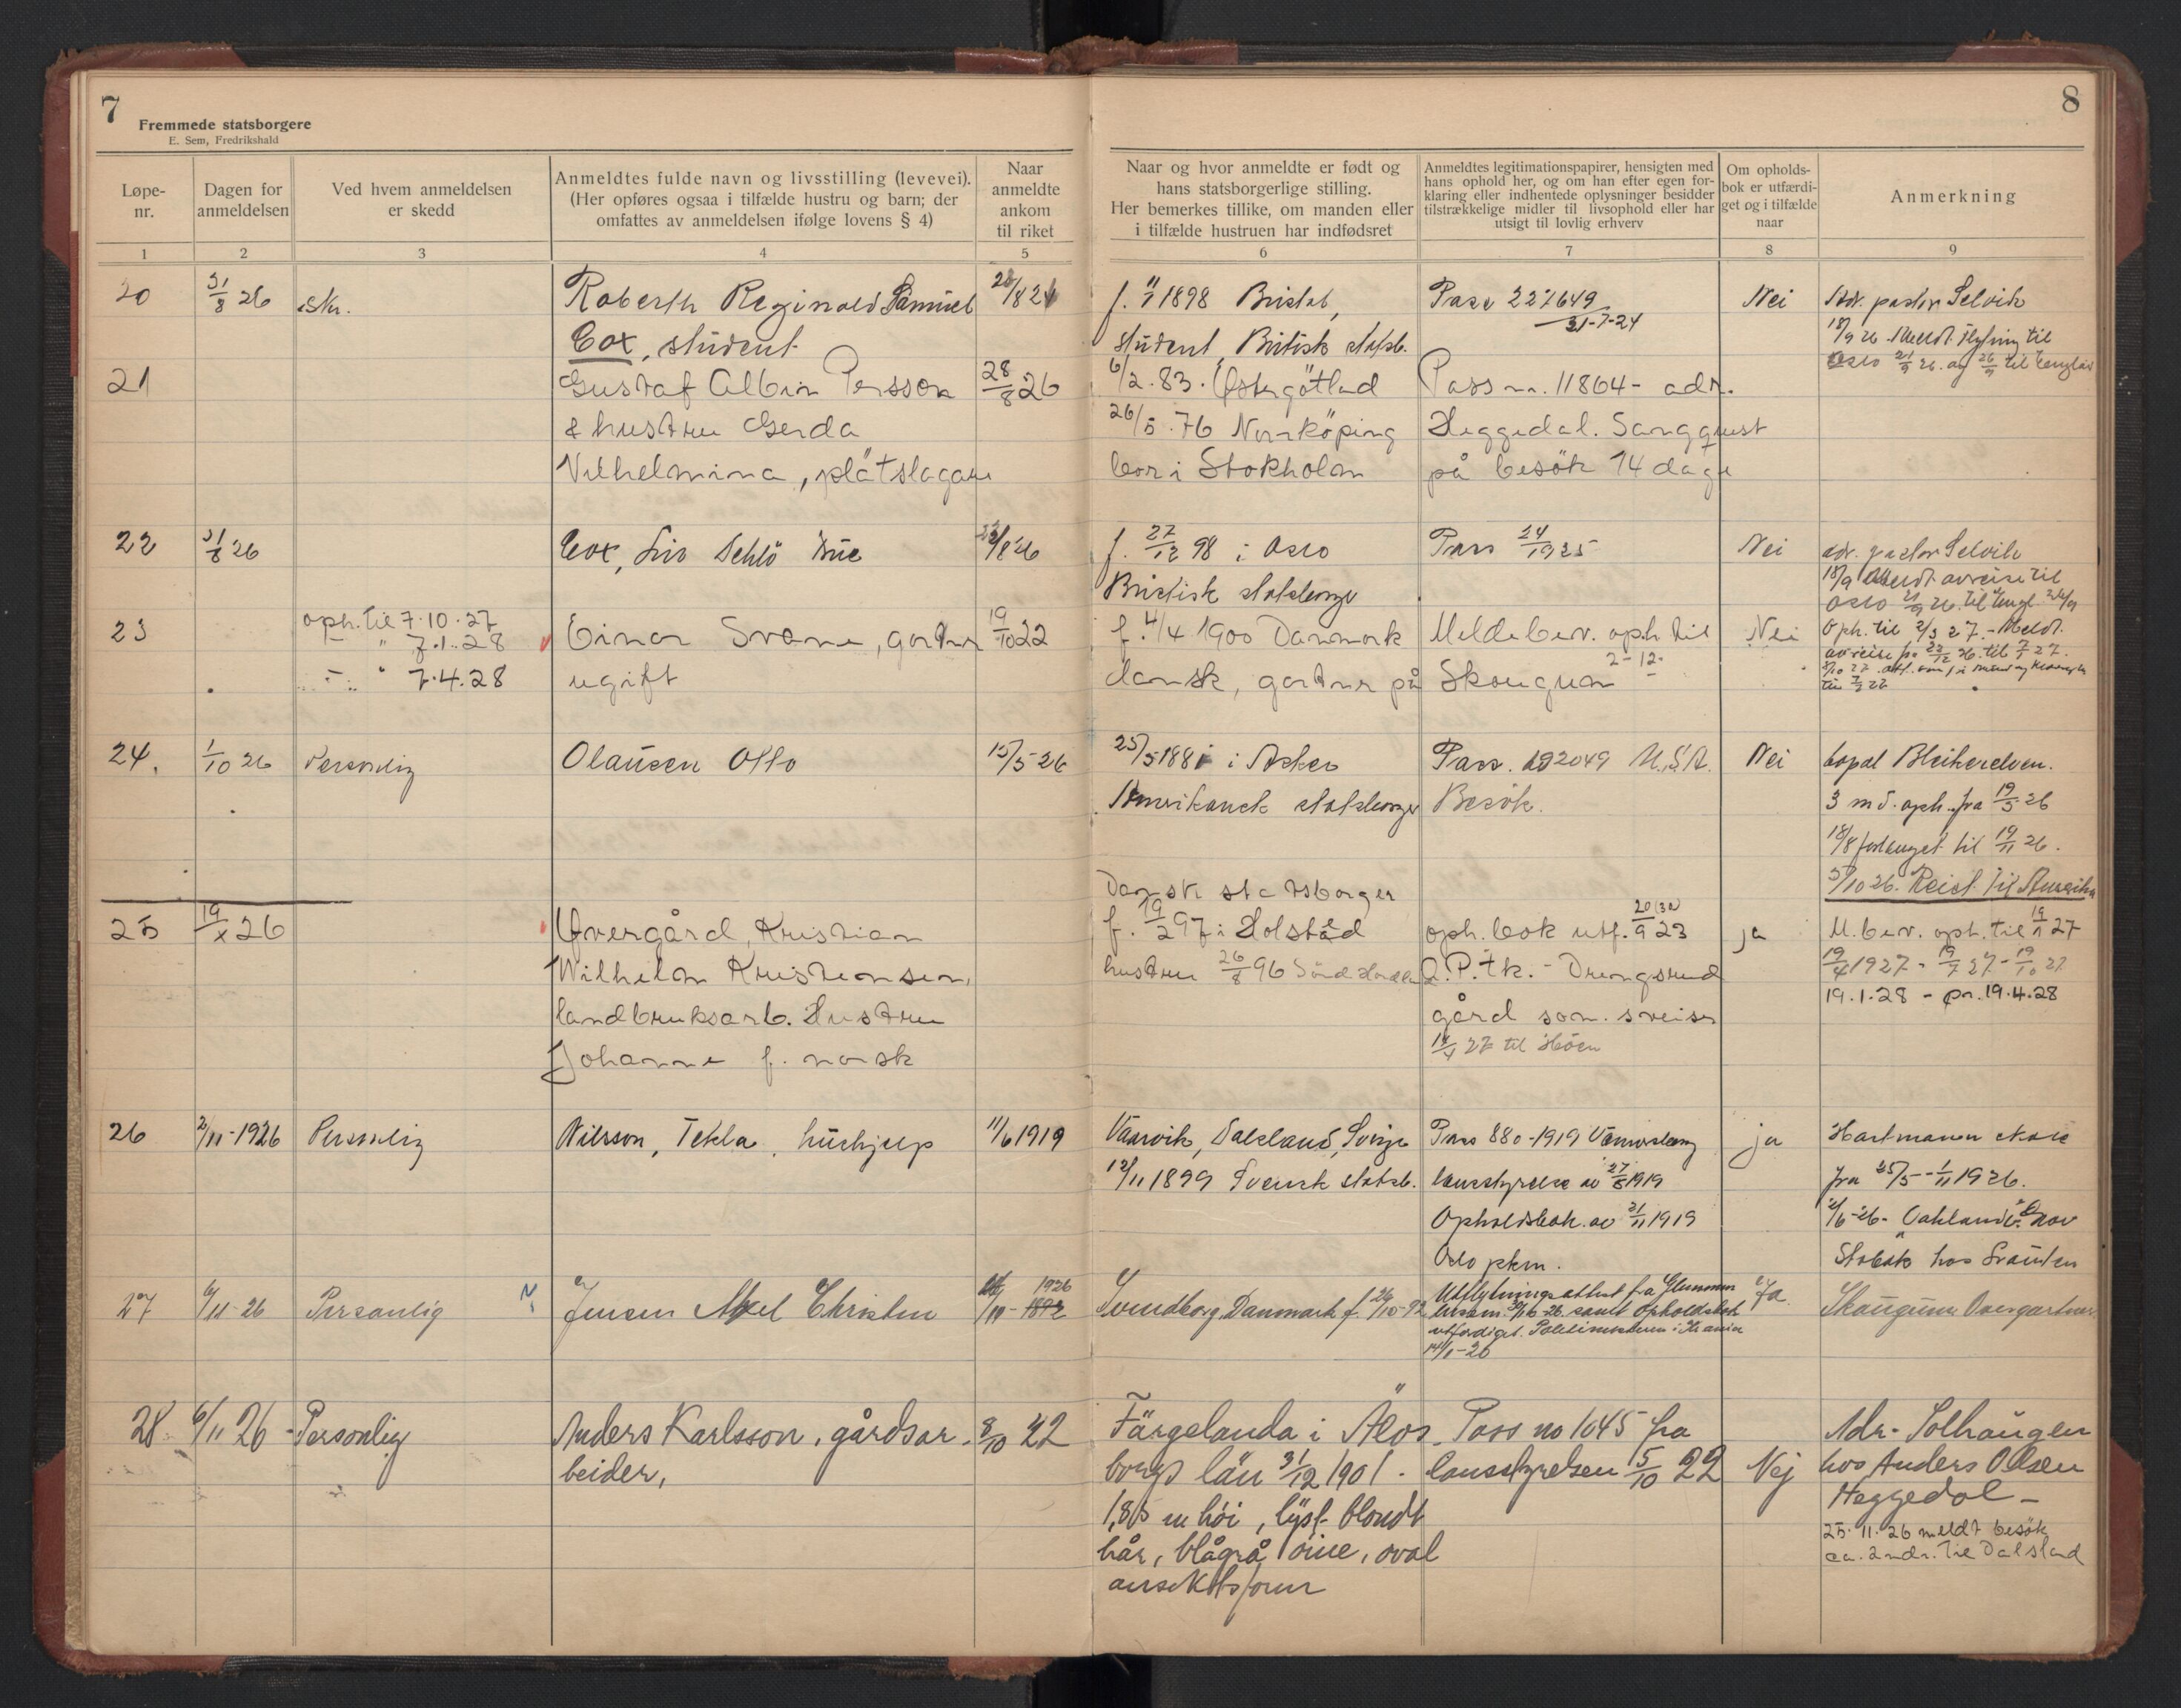 7
Fremmede statsborgere
E. Sem, Fredrikshald
Løpe-
nr.
Dagen for
anmeldelsen
Ved hvem anmeldelsen
er skedd
Anmeldtes fulde navn og livsstilling (levevei).
(Her opføres ogsaa i tilfælde hustru og barn; der
omfattes av anmeldelsen ifølge lovens § 4)
Naar
anmeldte
ankom
til riket
1
2
3
4
5
8
Naar og hvor anmeldte er født og
hans statsborgerlige stilling.
Her bemerkes tillike, om manden eller
i tilfælde hustruen har indfødsret
Anmeldtes legitimationspapirer, hensigten med
hans ophold her, og om han efter egen for-
klaring eller indhentede oplysninger besidder
tilstrækkelige midler til livsophold eller har
utsigt til lovlig erhverv
Om opholds-
bok er utfærdi-
get og i tilfælde
naar
Anmerkning
6
7
8
9
20
31/8 26
skr.
Roberth Reginald Samuel
Cox, student
f. 1898 Bristol,
student, Britisk statsb.
Pass 227649
31-7-24
Nei
Adr. pastor Selvik
18/9 26 Meldt flytning til
Oslo 21/9 26. og 26/9 til England
21
Gustaf Albin Persson
& hustru Gerda
Vilhelmina, plåtslagare
28/8 26
6/2. 83. Østergötland
26/5. 76 Norrköping
bor i Stokholm
Pass nr. 11864 - adr.
Heggedal. Sangquist
på besök 14 dage
22
31/8 26
Cox, Liv Dehlö
f. 27/12 98 i Oslo
Britisk statsborger
Pass
Nei
adr. pastor Selvik
18/9 Meldt avreise til
Oslo 21/9 26. til Engl.
23
oph. til 7.10.27
— " 7.1.28
— " 7.4.28
Einar Svane, gartner
ugift
19/10 22
f. 4/4 1900 Danmark
dansk, gartner på
Meldebev. oph. til
2-12-
Skaugum
Nei
Oph. til 2/3 27. - Meldt
avreise på 22/12 26. til 7/1 27.
24.
1/10 26
Personlig
Olausen Otto
15/5-26
25/5 1881 i Asker
Amerikansk statsborger
Pass. 192049 U.S.A.
Besøk.
Nei
bopæl Bleikerelven.
3 md. oph. fra 19/5 26
18/8 forlænget til 19/11 26.
5/10 26. Reist til Amerika
25
19/x 26
Øvergård, Kristian
Wilhelm Kristiansen,
landbruksarb. Hustru
Johanne f. norsk
Dansk statsborger
f. 19/2 97 i Holstäd
hustru 26/8 96
oph. bok utf. 20/9 23
O.P.tk. - Drengsrud
gård som sveiser
27 til Høen
ja
M. bev. oph. til 19/1 27
19/4 1927 - 19/7 27 - 19/10 27
19.1.28 - pr. 19.4.28
26
2/11-1926
Personlig
Nilsson, Tekla, hushjelp
11/6 1919
Vaarvik, Dalsland, Sverge
12/11 1899 Svensk statsb.
Pass 880-1919 Vänersborg
länsstyrelse av 27/5 1919
Opholdsbok av 21/11 1919
Oslo pkm.
ja
Hartmann
fra 25/5 - 1/11 1926.
Stabæk hos
27
6/11-26
Personlig
Jensen Axel Christen
1926
Svendborg, Danmark f. 26/10-92
Utflytningsattest fra Glemmen
samt opholdsbok
utfærdiget
Ja.
Skaugum Overgartner
28
6/11 26
Personlig
Anders Karlsson, gårdsar-
beider,
8/10 22
Färgelanda i Älvs-
borgs län 31/12 1901.
1,85 m høi, lyst blondt
hår, blågrå øine, oval
ansiktsform
Pass no 1045 fra
lansstyrelsen 15/10 22
Nej
Adr. Solhaugen
hos Anders Olsen
Heggedal -
25.11.26 meldt besök
ca. 2 mdr. til Dalsland